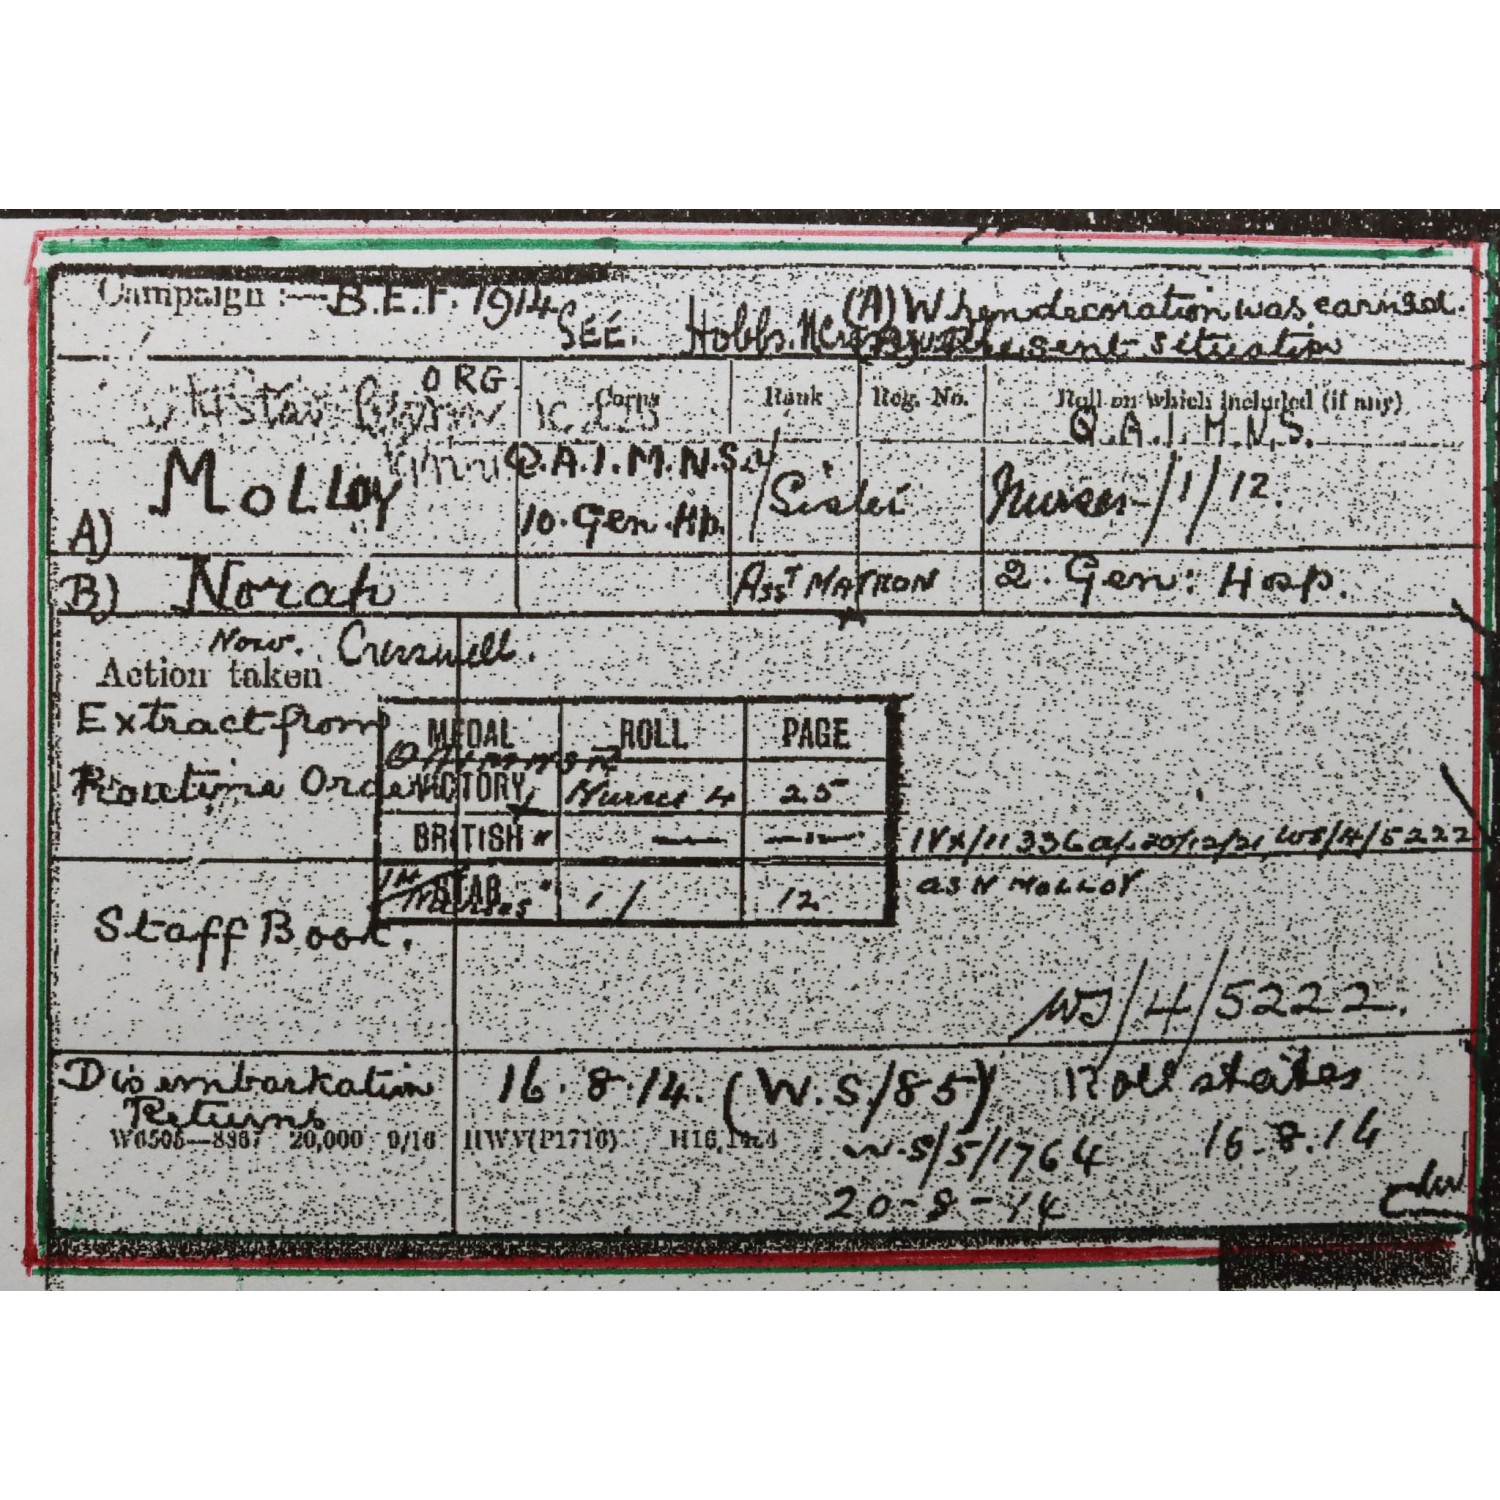 Campaign :— B.E.F. 1914 (A) When decoration was earned.
SEE. Hobbs. (B) Present Situation
ORG Corps Rank Reg. No. Roll on which included (if any)
Q.A.I.M.N.S.
MOLLOY Q.A.I.M.N.S.
A) 10. Gen. Hp. Sister Nurses /1/12.
B) Norah Asst MATRON 2. Gen: Hosp.
Now. Cresswell.
Action taken
Extract from MEDAL ROLL PAGE
Routine Order VICTORY Nurses 4 25
BRITISH " — —"— IVX/11336 a/ 20/12/21 WS/4/5222
STAR 1/ 12 as N MOLLOY
Staff Book.
WS/4/5222.
Disembarkation 16.8.14. (W.S/85) Roll states
Returns 16.8.14
W6505—8867 20,000 9/16 HWV(P1716) W.S/5/1764
20-8-14